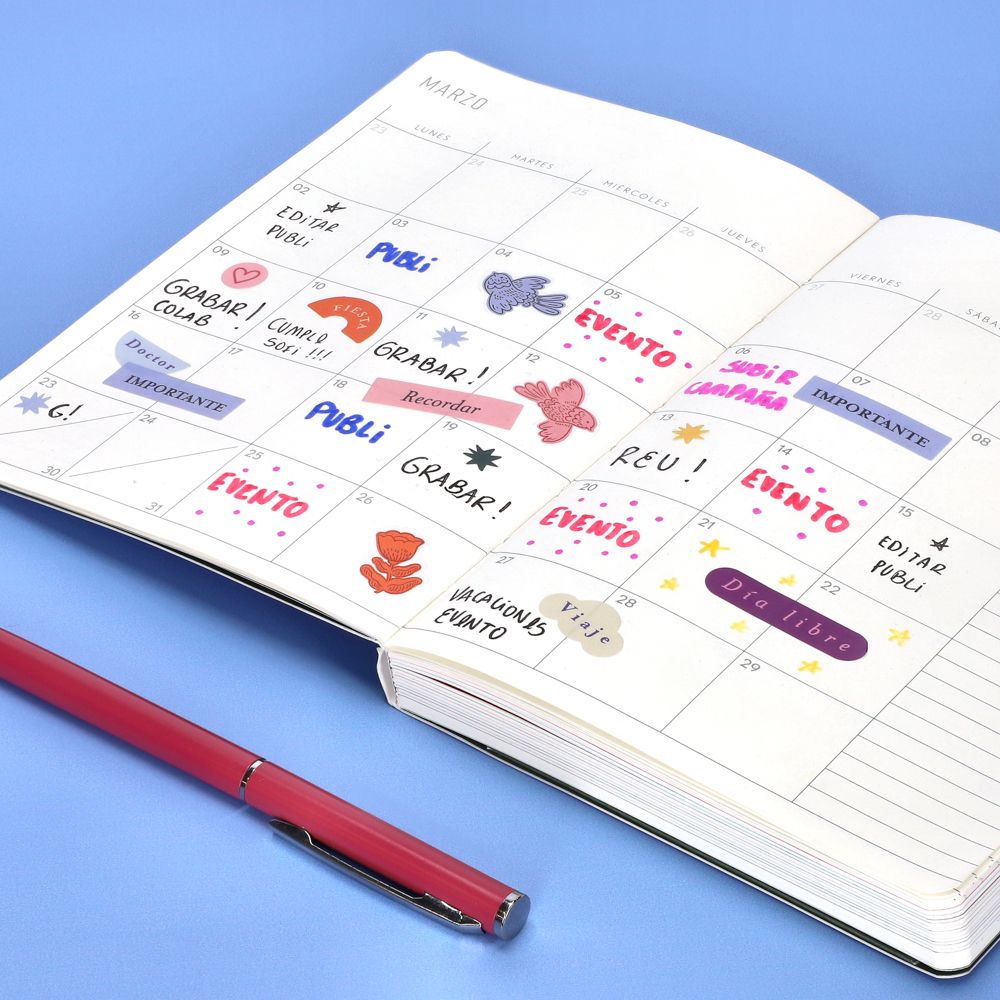 MARZO
LUNES
MARTES
MIÉRCOLES
JUEVES
VIERNES
23
24
25
26
27
28
02
EDITAR
PUBLI
03
PUBLI
04
05
EVENTO
06
SUBIR
CAMPAÑA
07
IMPORTANTE
08
09
GRABAR!
COLAB
10
FIESTA
CUMPLE
SOFI !!!
11
GRABAR!
12
13
REU!
14
EVENTO
15
EDITAR
PUBLI
16
Doctor
IMPORTANTE
17
18
PUBLI
Recordar
19
GRABAR!
20
EVENTO
21
Día libre
22
23
G!
24
25
EVENTO
26
27
VACACIONES
EVENTO
Viaje
28
29
30
31